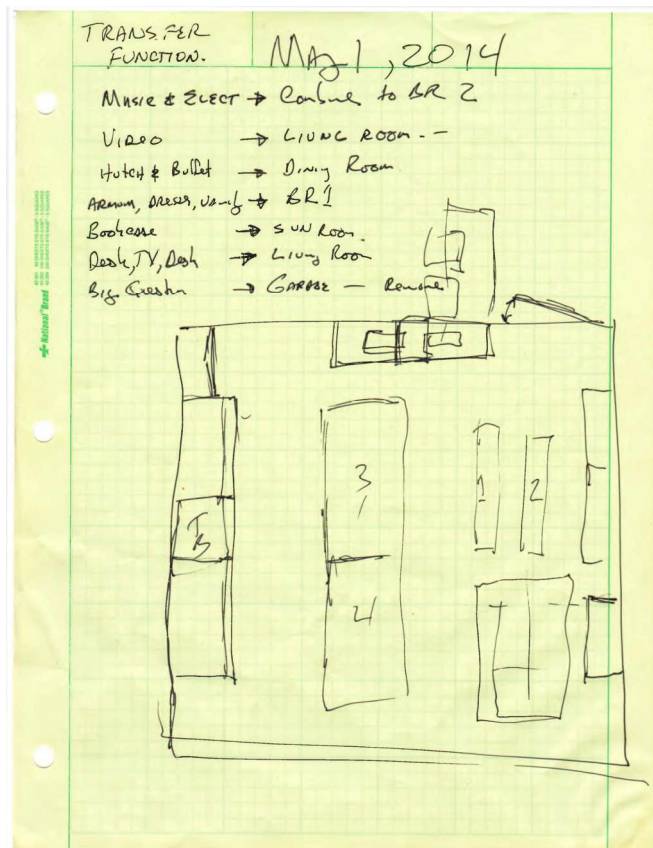 TRANSFER
FUNCTION.
May 1, 2014
Music & ELECT → Combine to BR 2
VIDEO → LIVING ROOM. -
Hutch & Buffet → Dining Room
ARMOIR, DRESER, Vanity → BR1
Bookcase → SUN Room.
Desk, TV, Desk → Living Room
Big → GARAGE — Remove
National Brand
3
1
2
4
T
B